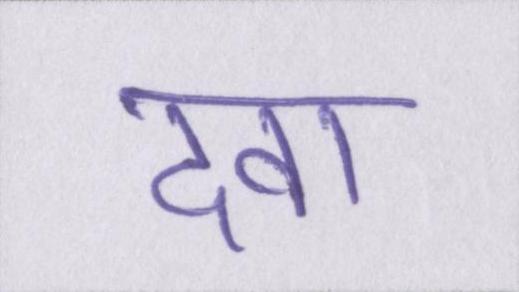 दवा